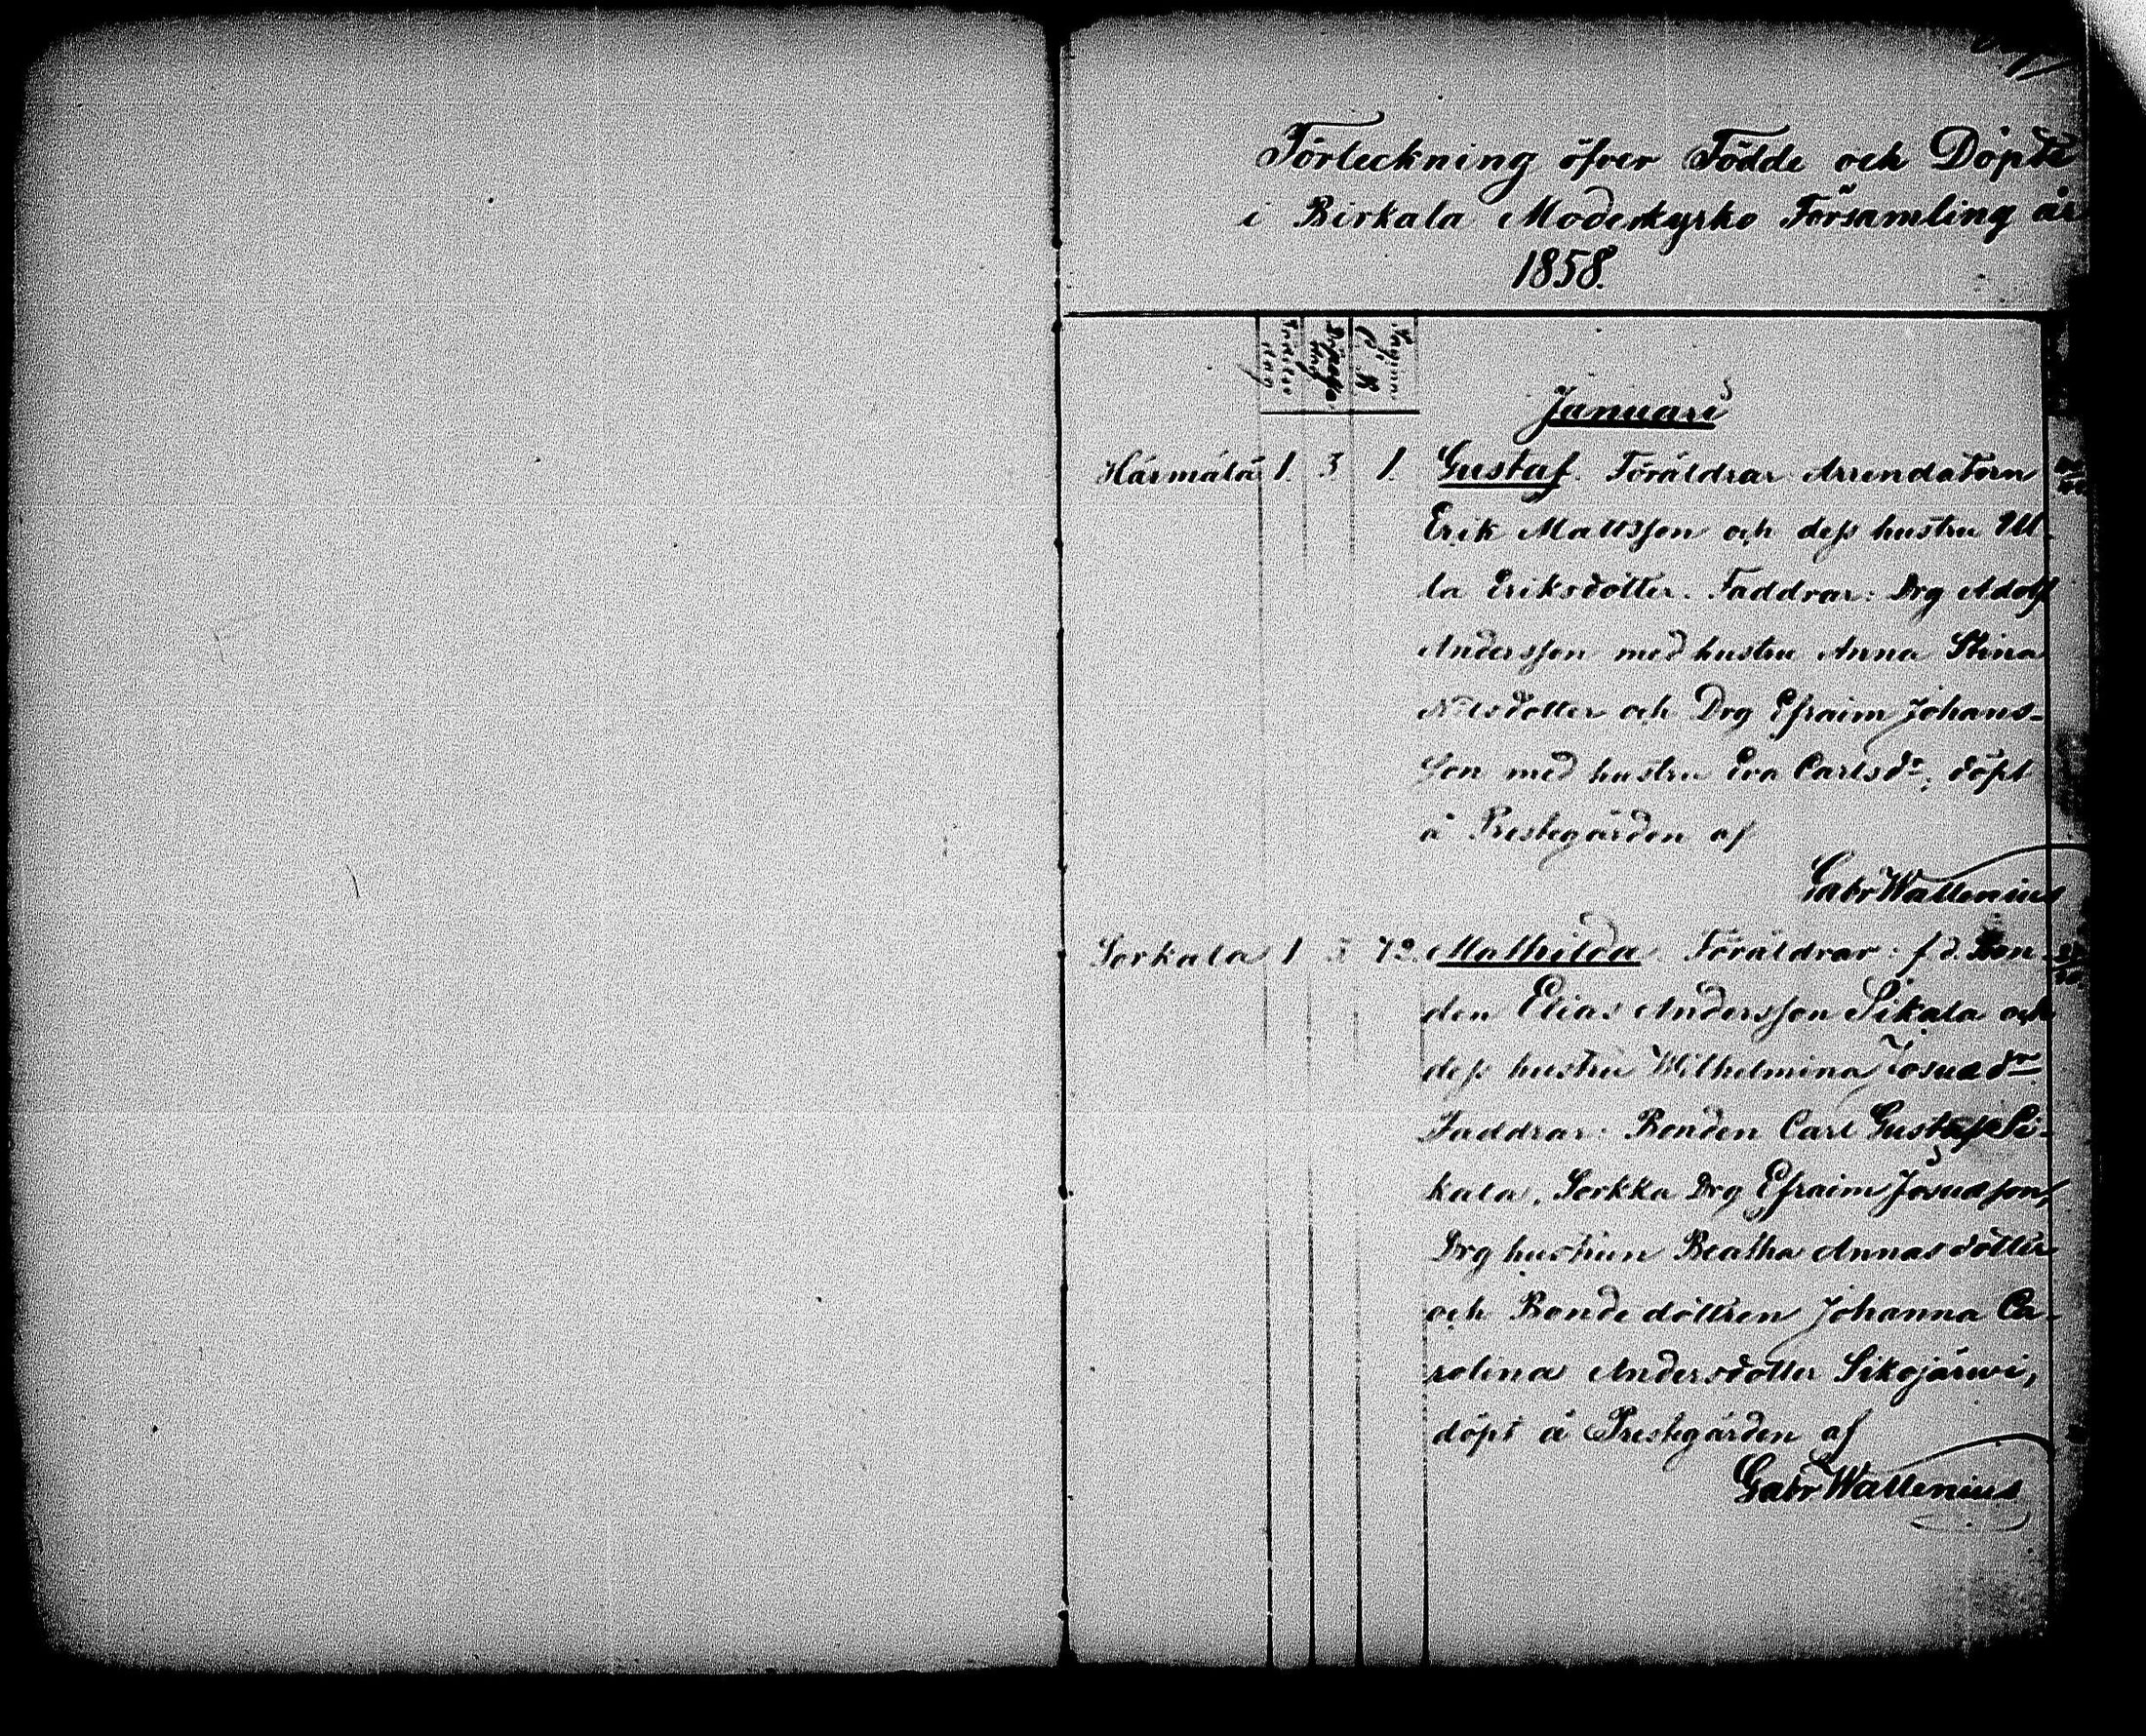 Förteckning öfver Födde och Döpte
i Birkala Moderkyrko Församling år
1858.
Födelse dag
Januari
Härmälä 1. 3 1. Gustaf. Föräldrar Arrendatorn
Erik Mattsson och dess hustru Ul-
la Eriksdotter. Faddrar: Drg Adolf
Andersson med hustru Anna Stina
Nilsdotter och Drg Efraim Johans-
son med hustru Eva Carlsdr, döpt
å Prestegården af
Gabr Wallenius
Sorkala 1 3 72. Mathilda. Föräldrar: f d. Bon-
den Elias Andersson Sikala och
dess hustru Wilhelmina Josuædr
Faddrar: Bonden Carl Gustaf Si-
kala, Sorkka Drg Efraim Josuæson,
Drg hustrun Beatha Annasdotter
och Bonde dottren Johanna Ca-
rolina Andersdotter Sikojärwi,
döpt å Prestegården af
Gabr Wallenius